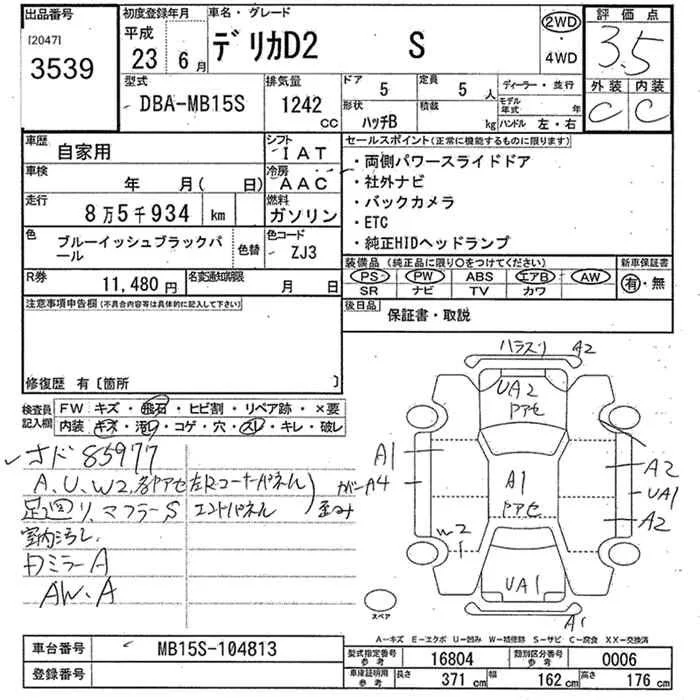 出品番号
[2047]
3539
初度登録年月
平成
23 6月
車名・グレード
デリカD2 S
2WD
4WD
評価点
3.5
外装 内装
C C
型式
DBA-MB15S
排気量
1242
CC
ドア 5
定員 5 人
形状
ハッチB
積載
kg
ディーラー・並行
モデル年式 年
ハンドル 左・右
車歴
自家用
シフト
IAT
車検
年 月( 日)
冷房
AAC
走行
8万5千934 km
燃料
ガソリン
色
ブルーイッシュブラックパール
色替
色コード
ZJ3
R券
11,480 円
名変通知期限
月 日
セールスポイント(正常に機能するものに限ります)
・両側パワースライドドア
・社外ナビ
・バックカメラ
・ETC
・純正HIDヘッドランプ
装備品(純正品に限り○をつけてください)
新車保証書
PS PW ABS エアB AW
SR ナビ TV カワ
有・無
後日品
保証書・取説
注意事項申告欄(不具合内容等は具体的に記入して下さい)
修復歴 有〔箇所 〕
検査員記入欄
FW キズ・飛石・ヒビ割・リペア跡・×要
内装 キズ・汚レ・コゲ・穴・スレ・キレ・破レ
85977
A、U、W2、
左Rコーナーパネル
エンドパネル
歪み
リ、マフラーS
室内汚レ
ミラーA
AW、A
A2
UA2
アセ
A1
A4
A1
アセ
A2
UA1
A2
W2
UA1
A1
スペア
A-キズ E-エクボ U-凹み W-補修跡 S-サビ C-腐食 XX-交換済
車台番号
MB15S-104813
登録番号
型式指定番号 参考
16804
類別区分番号 参考
0006
車庫証明用 参考
長さ 371 cm
幅 162 cm
高さ 176 cm